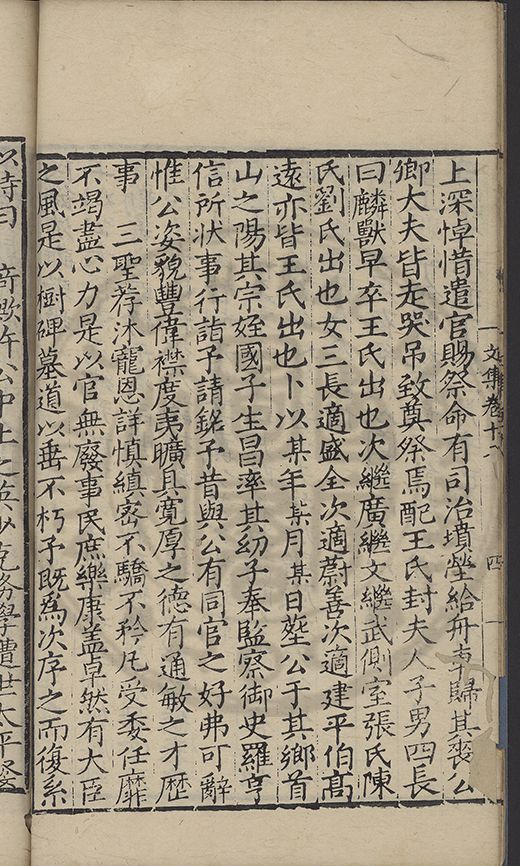 文集卷十六
四
上深悼惜遣官賜祭命有司治墳塋給舟車歸其喪公
卿大夫皆走哭吊致奠祭焉配王氏封夫人子男四長
曰麟獸早卒王氏出也次繼廣繼文繼武側室張氏陳
氏劉氏出也女三長適盛全次適蔚善次適建平伯高
遠亦皆王氏出也卜以某年某月某日塟公于其鄉首
山之陽其宗姪國子生昌率其幼子奉監察御史羅亨
信所狀事行詣予請銘予昔與公有同官之好弗可辭
惟公姿貌豐偉襟度夷曠具寬厚之德有通敏之才歷
事　三聖荐沐寵恩詳慎縝密不驕不矜凡受委任靡
不竭盡心力是以官無廢事民庶樂康盖卓然有大臣
之風是以樹碑墓道以垂不朽予既爲次序之而復系
以詩曰　奇歟許公中土之英少克務學遭世太平